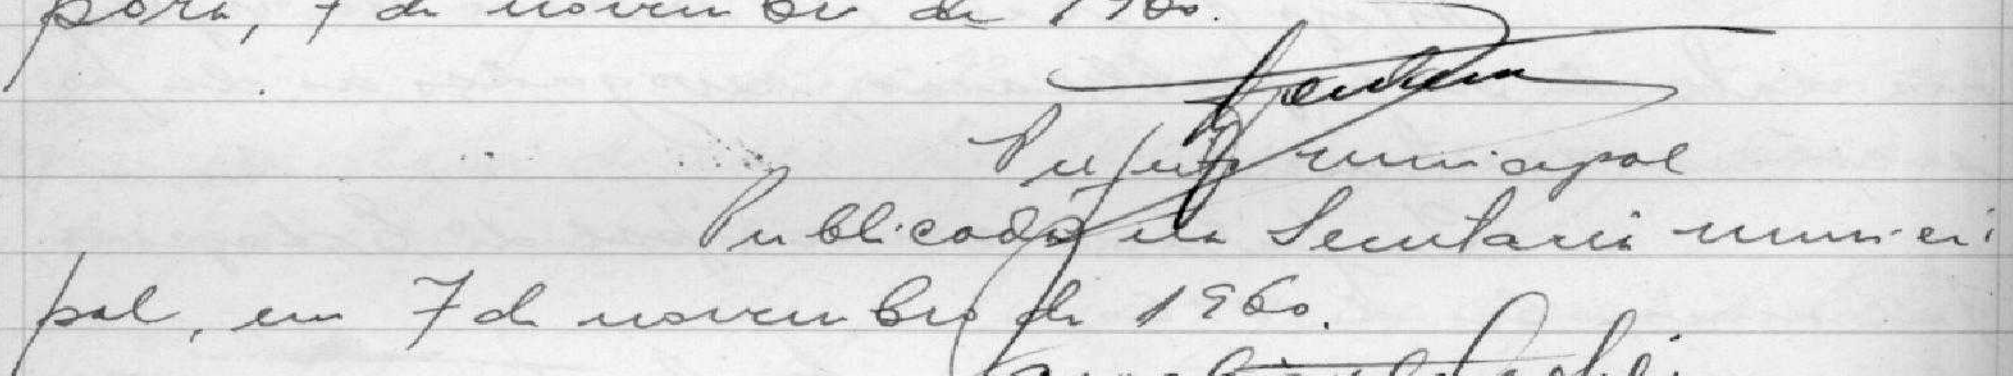 porã, 7 de novembro de 1960.
Prefeito municipal
Publicada na Secretaria munici
pal, em 7 de novembro de 1960.